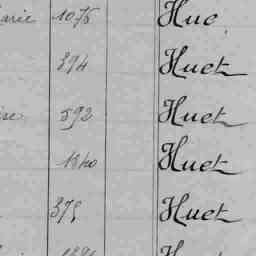 1075 Huc
394 Huet
592 Huet
1840 Huet
375 Huet